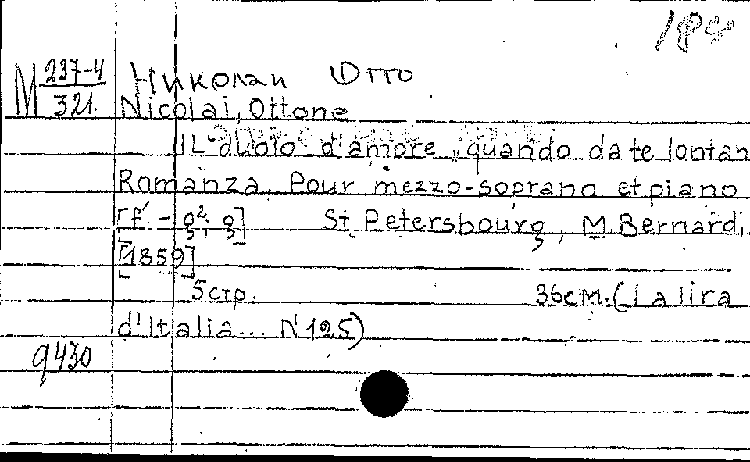 184
M 237-4/321
Николаи Отто
Nicolai, Ottone
IL duolo d'amore, quando da te lontan
Romanza. Pour mezzo-soprano et piano
[f' - g², g]   St Petersbourg, M. Bernard,
[1859]
5 стр.   36 см. (La lira
d'Italia... N 125)
9430